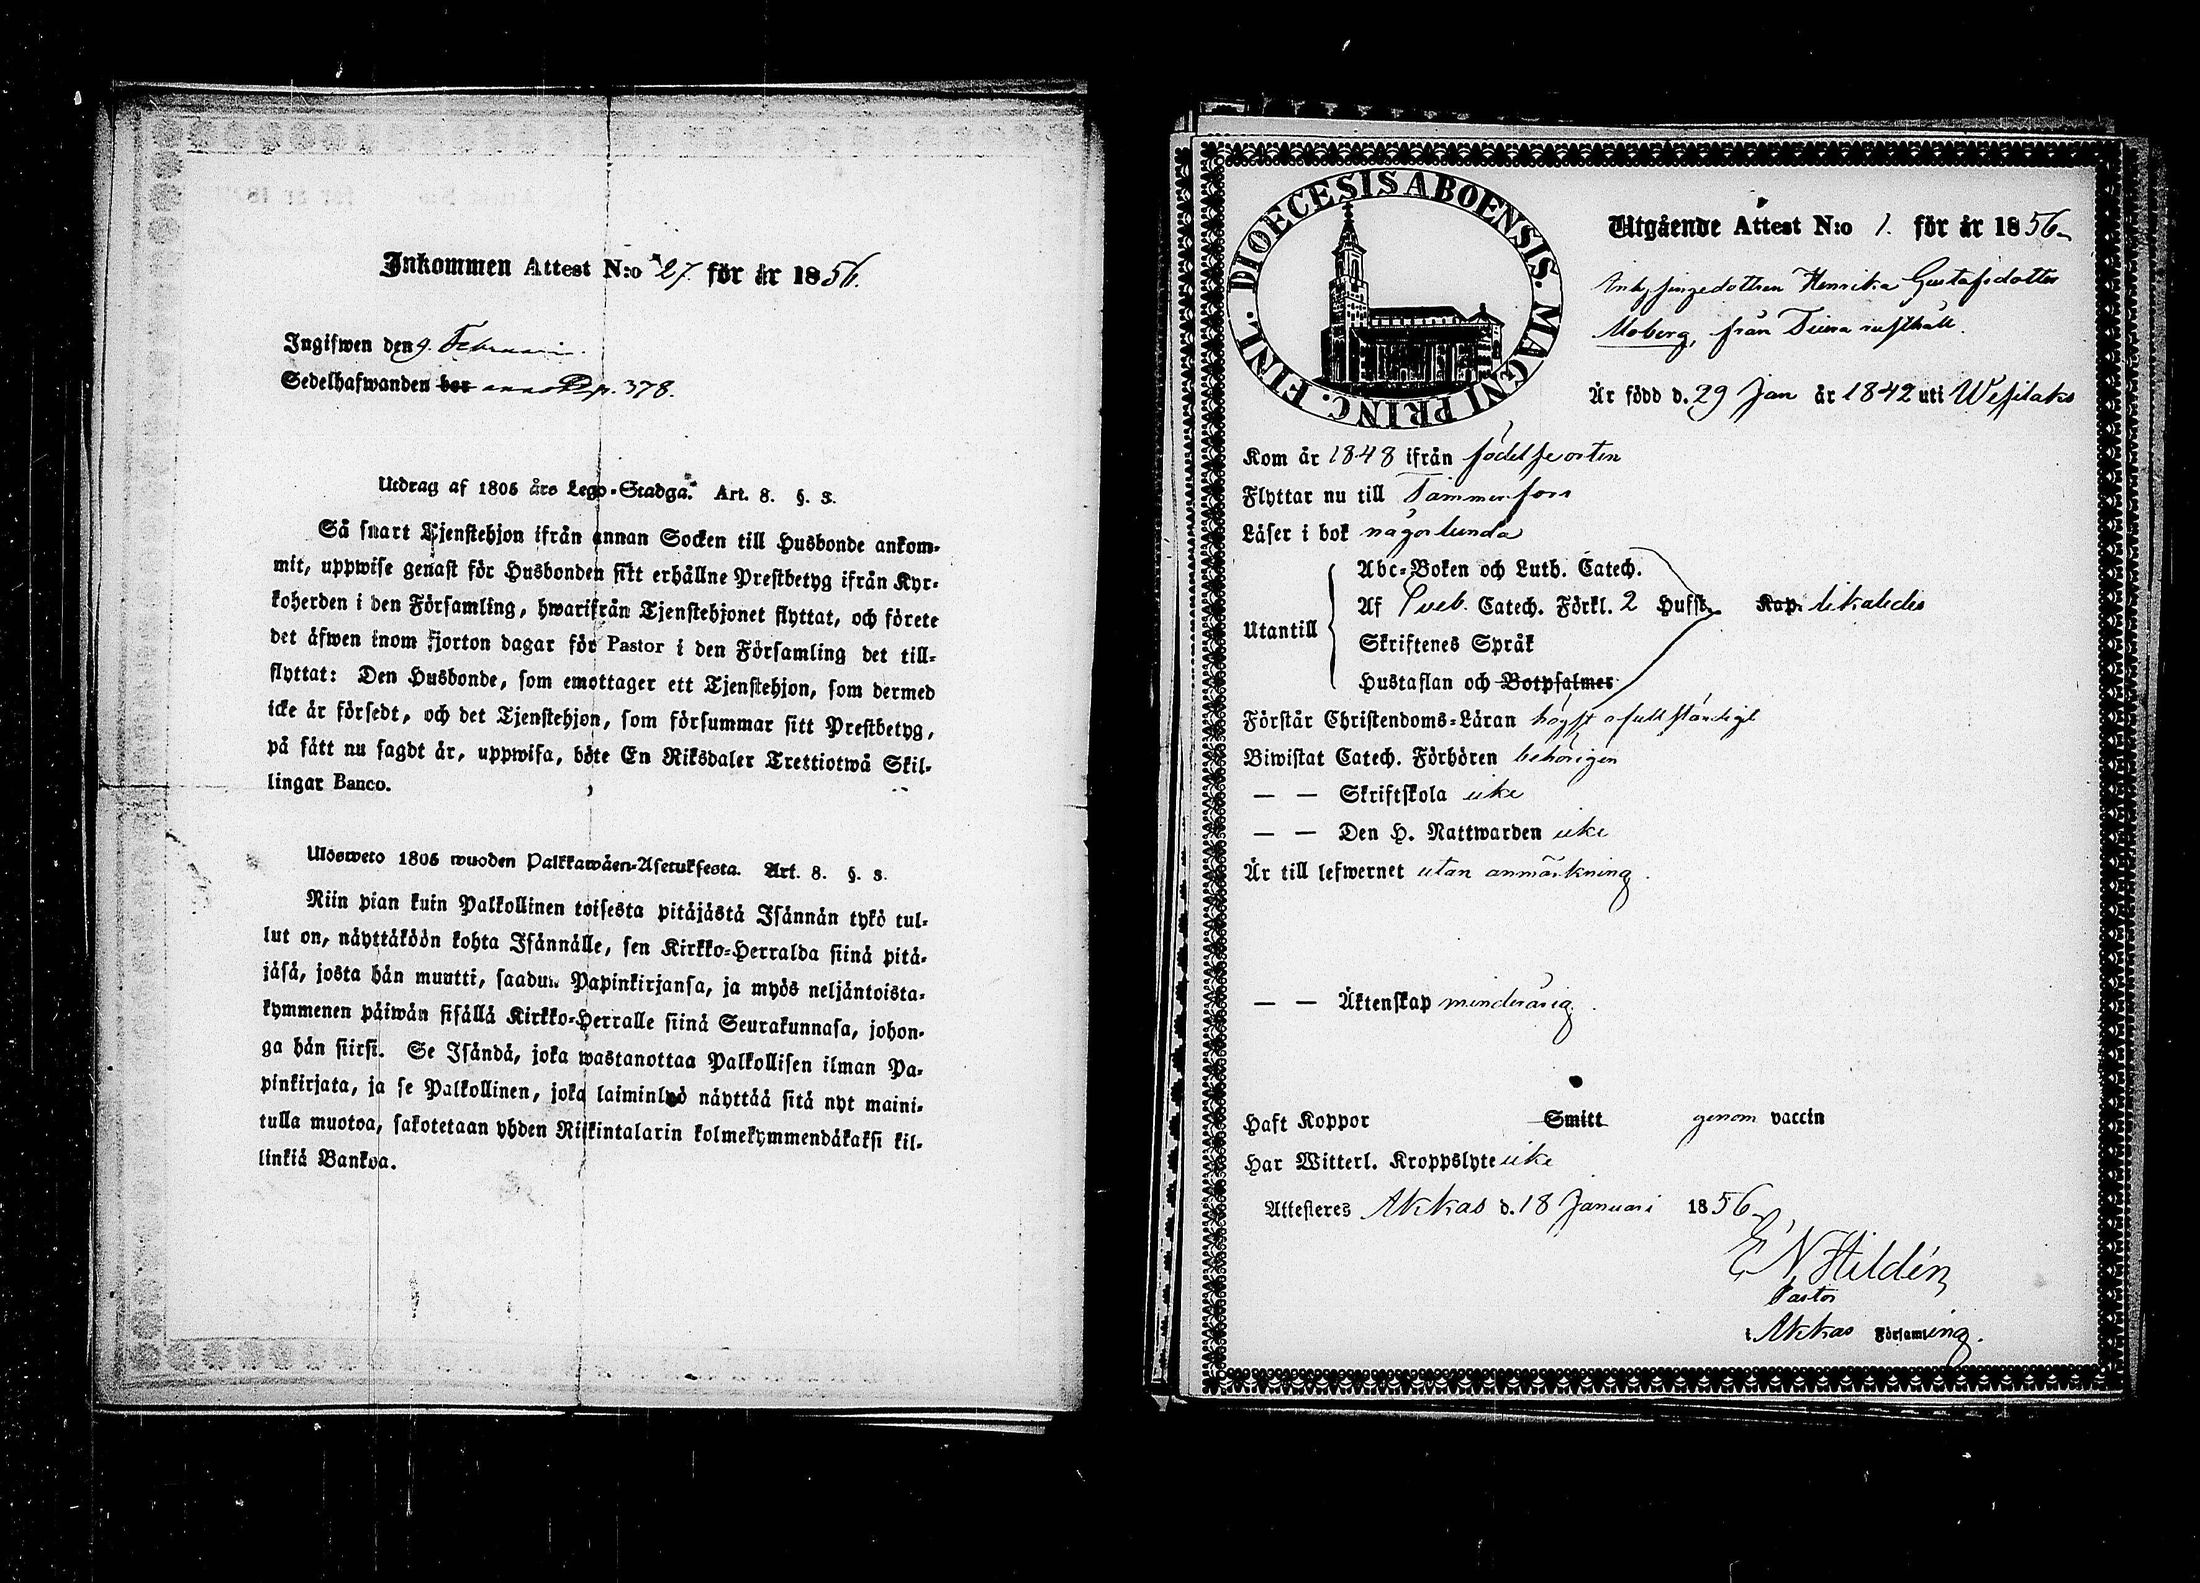 Inkommen Attest N:o 27. för år 1856.
Ingifwen den 9. Februari.
Sedelhafwanden bor anno p. 378.
Utdrag af 1805 års Lego-Stadga. Art. 8. §. 3.
Så snart Tjenstehjon ifrån annan Socken till Husbonde ankom-
mit, uppwise genast för Husbonden sitt erhållne Prestbetyg ifrån Kyr-
koherden i den Församling, hwarifrån Tjenstehjonet flyttat, och förete
det äfwen inom fjorton dagar för Pastor i den Församling det till-
flyttat: Den Husbonde, som emottager ett Tjenstehjon, som dermed
icke är försedt, och det Tjenstehjon, som försummar sitt Prestbetyg,
på sätt nu sagdt är, uppwisa, böte En Riksdaler Trettiotwå Skil-
lingar Banco.
Ulosweto 1805 wuoden Palkkawäen-Asetuksesta. Art. 8. §. 3.
Niin pian kuin Palkollinen toisesta pitäjästä Isännän tykö tul-
lut on, näyttäköön kohta Isännälle, sen Kirkko-Herralda siinä pitä-
jäsä, josta hän muutti, saadun Papinkirjansa, ja myös neljäntoista-
kymmenen päiwän sisällä Kirkko-Herralle siinä Seurakunnasa, johon-
ga hän siirsi. Se Isändä, joka wastanottaa Palkollisen ilman Pa-
pinkirjata, ja se Palkollinen, joka laiminlyö näyttää sitä nyt maini-
tulla muotoa, sakotetaan yhden Riikintalarin kolmekymmendäkaksi kil-
linkiä Bankoa.
FINL. DIOECESIS ABOENSIS. MAGNI PRINC.
Utgående Attest N:o 1. för år 1856
Inhysingedottren Henrika Gustafsdotter
Moberg, från rusthåll.
Är född d. 29 Jan år 1842 uti Wesilaks
Kom år 1848 ifrån födelseorten
Flyttar nu till Tammerfors
Läser i bok någorlunda
Abc-Boken och Luth. Catech.
Af Sveb. Catech. Förkl. 2 Hufst. Kap. likaledes
Utantill
Skriftenes Språk
Hustaflan och Botpsalmer
Förstår Christendoms-Läran högst ofullständigt
Biwistat Catech. Förhören behörigen
— — Skriftskola icke
— — Den H. Nattwarden icke
Är till lefwernet utan anmärkning.
— — Äktenskap minderårig.
Haft Koppor Smitt genom vaccin
Har Witterl. Kroppslyte icke
Attesteres Akkas d. 18 Januari 1856
E N Hildén
Pastor
i Akkas Församling.